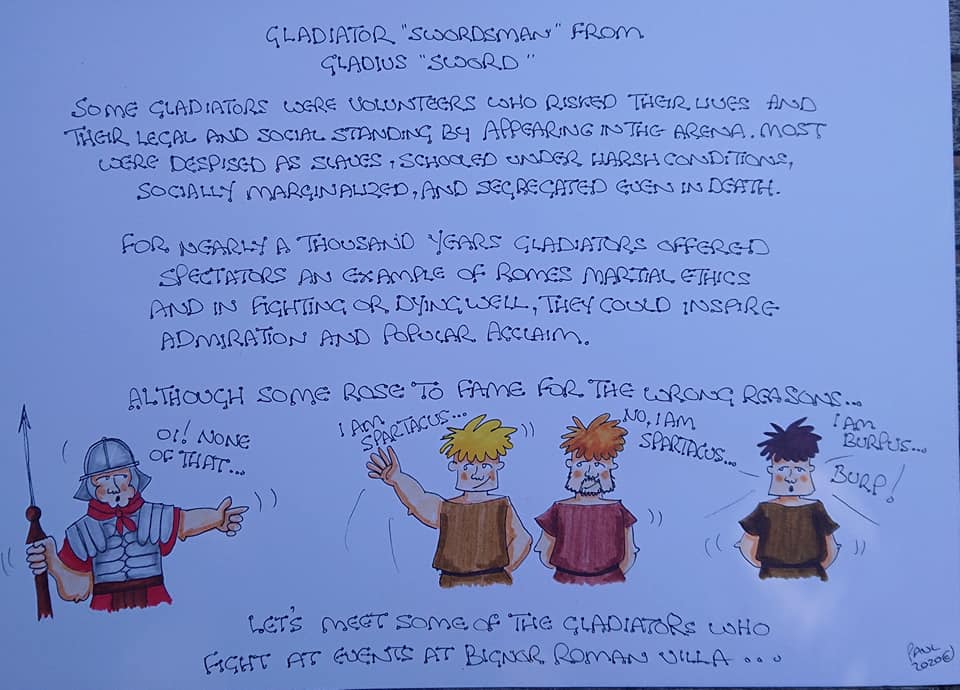 GLADIATOR "SWORDSMAN" FROM
GLADIUS "SWORD"
SOME GLADIATORS WERE VOLUNTEERS WHO RISKED THEIR LIVES AND
THEIR LEGAL AND SOCIAL STANDING BY APPEARING IN THE ARENA. MOST
WERE DESPISED AS SLAVES, SCHOOLED UNDER HARSH CONDITIONS,
SOCIALLY MARGINALIZED, AND SEGREGATED EVEN IN DEATH.
FOR NEARLY A THOUSAND YEARS GLADIATORS OFFERED
SPECTATORS AN EXAMPLE OF ROMES MARTIAL ETHICS
AND IN FIGHTING OR DYING WELL, THEY COULD INSPIRE
ADMIRATION AND POPULAR ACCLAIM.
ALTHOUGH SOME ROSE TO FAME FOR THE WRONG REASONS...
OI! NONE
OF THAT...
I AM
SPARTACUS...
NO, I AM
SPARTACUS...
I AM
BURPUS...
BURP!
LET'S MEET SOME OF THE GLADIATORS WHO
FIGHT AT EVENTS AT BIGNOR ROMAN VILLA ...
PAUL
2020©